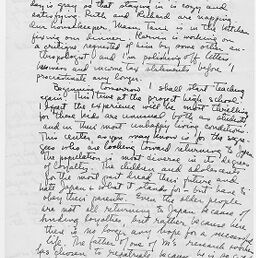 day is gray so that staying in is cozy and
satisfying. Ruth and Richard are napping
our housekeeper, is in the kitchen
fixing our dinner. Marvin is working on
a critique requested of him by some other an-
thropologist and I'm polishing off letters
business and income tax statements before I
procrastinate any longer.
Beginning tomorrow I shall start teaching
again. This time at the project high school.
I expect the experience will be most
for these kids are unusual both as students
and in their most unhappy living condition.
This center as you may know is for the segre-
gees who are looking toward returning to Japan
The population is most diverse in its degree
of loyalty. The children and adolescents
for the most part dread their future and
hate Japan & what it stands for - but have to
obey their parents. Even the older people
are not all returning to Japan because of
loyalties but rather because
there is no longer any hope for a
life. The father of one of M's research
has chosen to repatriate because he is